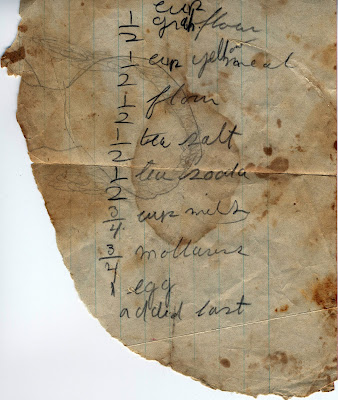 cup
1/2 grah flour
1/2 cup yellow meal
1/2 flour
1/2 tea salt
1/2 tea sooda
3/4 cup milk
3/4 mollasses
1 egg
added last